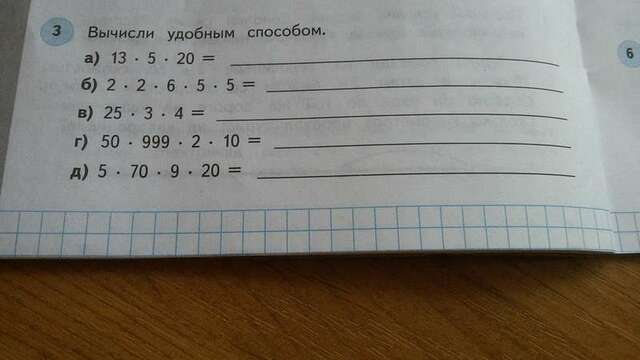 3 Вычисли удобным способом.
а) 13 · 5 · 20 =
б) 2 · 2 · 6 · 5 · 5 =
в) 25 · 3 · 4 =
г) 50 · 999 · 2 · 10 =
д) 5 · 70 · 9 · 20 =
6